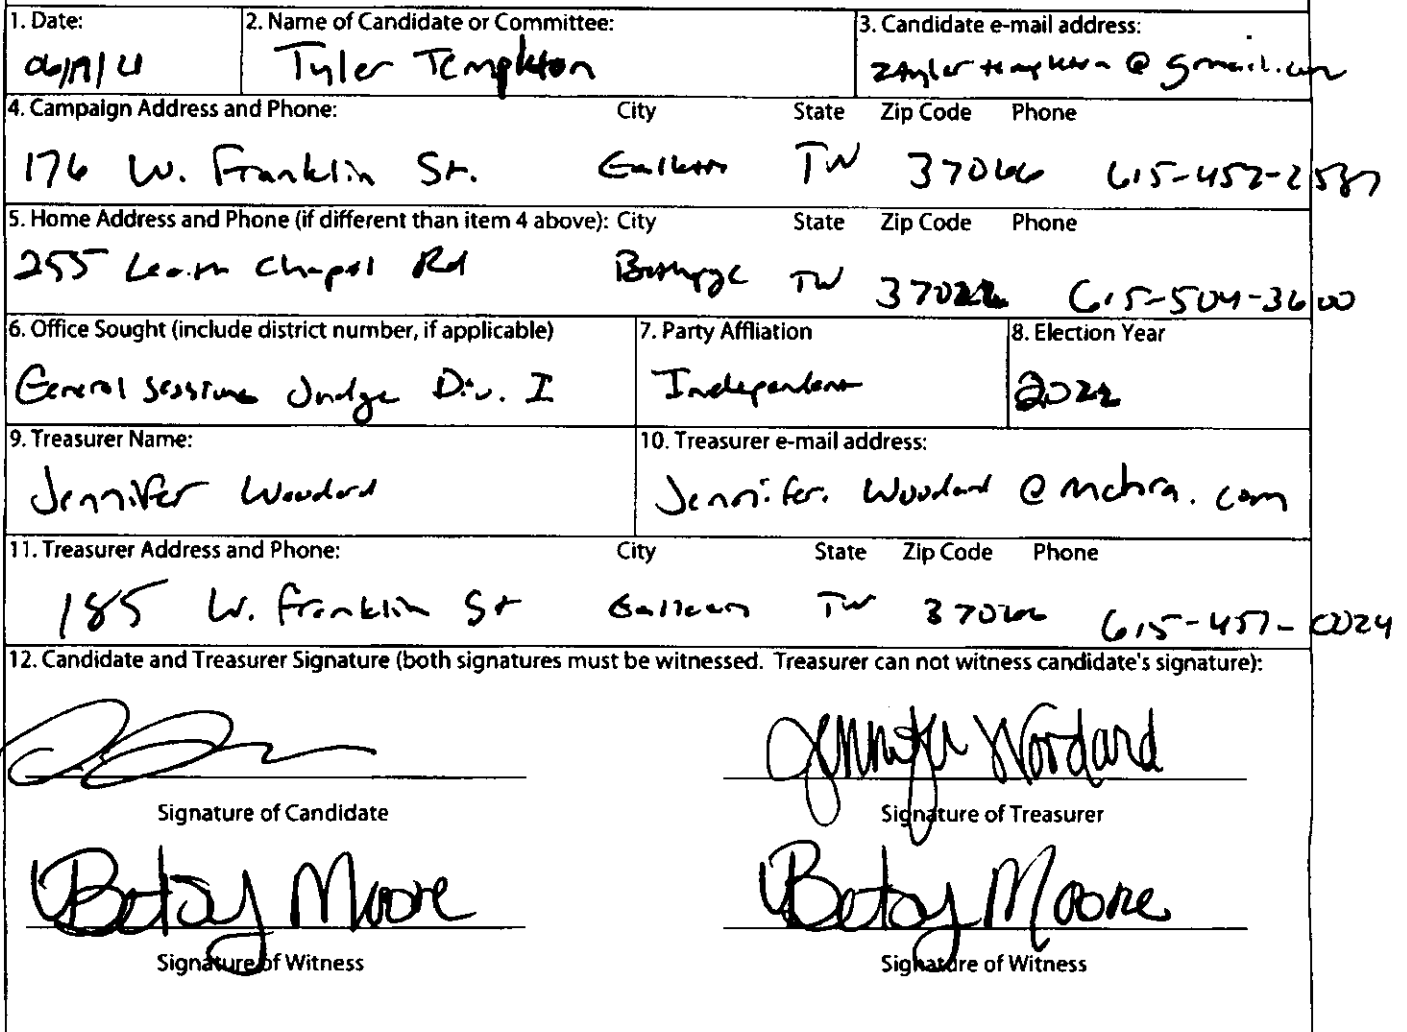 1. Date: 2. Name of Candidate or Committee: 3. Candidate e-mail address:
Tyler Templeton @gmail.com
4. Campaign Address and Phone: City State Zip Code Phone
176 W. Franklin St. Gallatin TN 37066 615-452-2587
5. Home Address and Phone (if different than item 4 above): City State Zip Code Phone
255 Leath Chapel Rd Bethpage TN 37022 615-504-3600
6. Office Sought (include district number, if applicable) 7. Party Affliation 8. Election Year
General Sessions Judge Div. I Independent 2022
9. Treasurer Name: 10. Treasurer e-mail address:
Jennifer Woodard Jennifer.Woodard@mchra.com
11. Treasurer Address and Phone: City State Zip Code Phone
185 W. Franklin St Gallatin TN 37066 615-457-0024
12. Candidate and Treasurer Signature (both signatures must be witnessed. Treasurer can not witness candidate's signature):
Jennifer Woodard
Signature of Candidate Signature of Treasurer
Betsy Moore Betsy Moore
Signature of Witness Signature of Witness